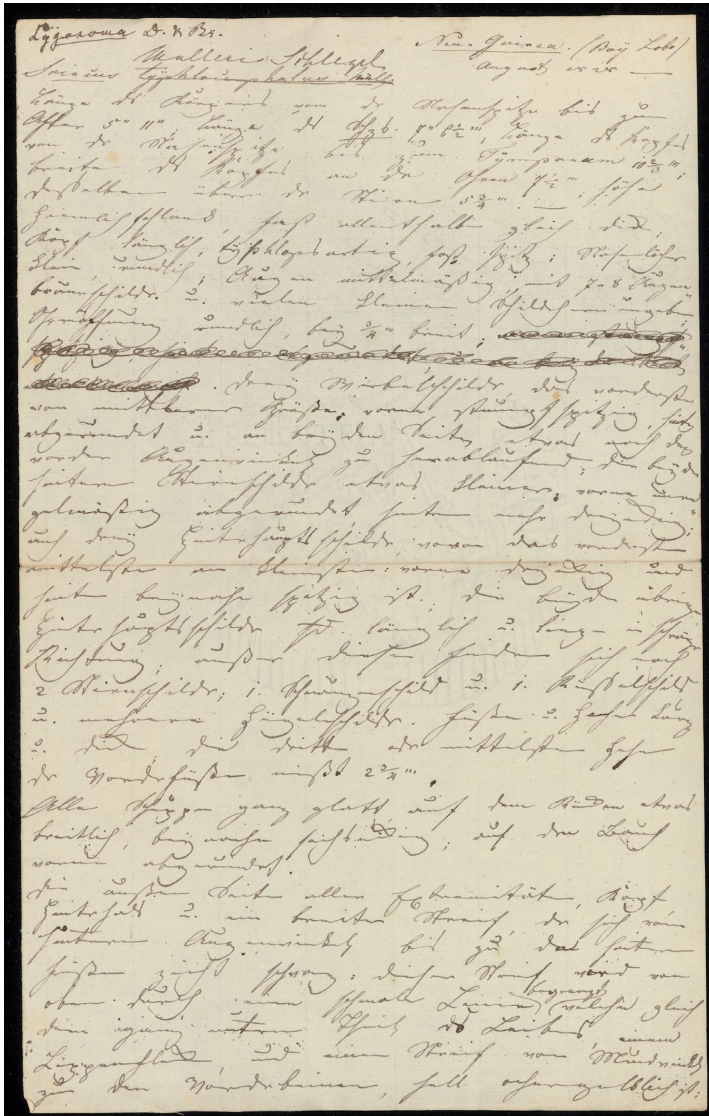 Lygosoma D. & Br.
Mülleri Schlegel
Neu Guinea. (Bay Lobo)
August 1828 —
Scincus typhlomorphus Müll.
Länge des Körpers von der Nasenspitze bis zum
After 5" 11"' Länge des Schzs. 7" 6½"', Länge des Kopfes
von der Nasenspitze bis zum Tympanum 10⅔"';
breite des Kopfes an den Ohren 7½"' Höhe
desselben über der Stirn 5¾"'. —
Ziemlich schlank, fast allenthalben gleich dick;
Kopf länglich, typhlopsartig, fast spitz; Nasenlöcher
klein, rundlich; Augen mittelmäßig, mit 7–8 Augen
braunschilde. u. vielen kleinen Schildchen umgeben;
Ohröffnung rundlich, bey ¾"' breit;
drey Wirbelschilde, das vorderste
von mittlerer Größe, vorne stumpf spitzig, hinten
abgerundet u. an beyden Seiten etwas nach dem
vorder Augenwinkel zu herablaufend; die beyde
hintern Stirnschilde etwas kleiner, vorne un
gelmäßig abgerundet, hinten mehr dreyeckig;
auch drey Hinterhauptsschilde, wovon das vorderste
mittelste am kleinsten: vorne dreyeckig und
hinten beynahe spitzig ist; die beyde übrigen
Hinterhauptsschilde sd. länglich u. liegen in schräger
Richtung; außer diesen finden sich noch
2 Stirnschilde; 1. Schnauzenschild u. 1. Rüsselschild
u. mehrere Zügelschilde. Füße u. Zehen kurz
u. dick die dritte oder mittelste Zehe
der Vorderfüße mißt 2¾"'.
Alle Schuppen ganz glatt, auf dem Rücken etwas
breitlich, beynahe sechseckig; auf den Bauch
vorne abgerundet.
Die äußere Seite aller Extremitäten, Kopf
Hinterhals u. ein breiter Streif, der sich vom
hintern Augenwinkel bis zu den hintern
Füßen zieht schwarz; dieser Streif wird von
oben durch eine schmale Linie begrenzt welche gleich
dem ganz untern Theil des Leibes, einem
Lippenfleck und einem Streif vom Mundwinkel
zu den Vorderbeinen, hell ochergelblich ist;